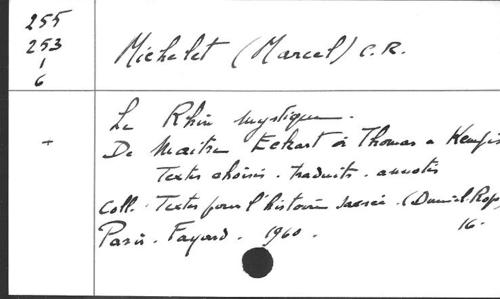 255
253
1
6
Michelet (Marcel) C.R.
Le Rhin mystique.
+ De Maître Eckart à Thomas a Kempis
Textes choisis. traduits. annotés
Coll. Textes pour l'histoire sacrée. (Daniel. Rops)
Paris. Fayard. 1960. 16.